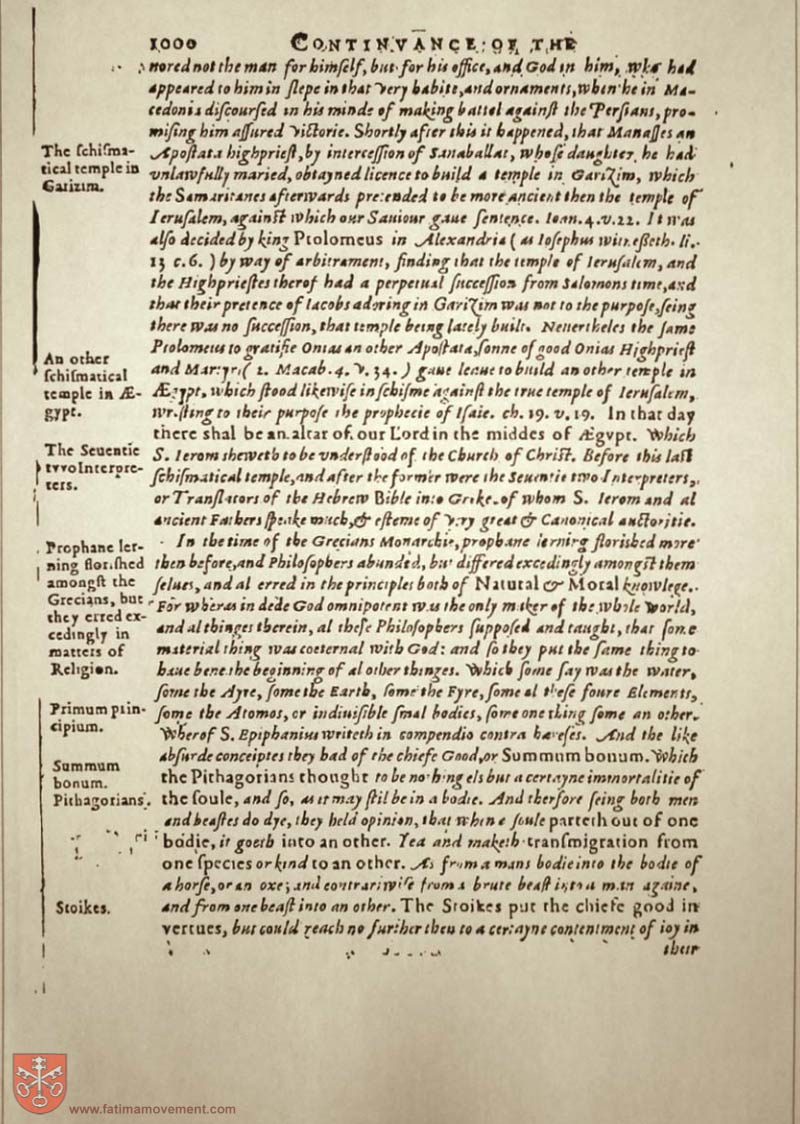 1000 CONTINVANCE OF THE
nored not the man for himself, but for his office, and God in him, who had
appeared to him in slepe in that very habite, and ornaments, when he in Ma-
cedonia discoursed in his minde of making battel against the Persians, pro-
mising him assured victorie. Shortly after this it happened, that Manasses an
The schisma-
tical temple in
Garizim.
Apostata highpriest, by intercession of Sanaballat, whose daughter he had
vnlawfully maried, obtayned licence to build a temple in Garizim, which
the Samaritanes afterwards pretended to be more ancient then the temple of
Ierusalem, against which our Sauiour gaue sentence. Ioan. 4. v. 22. It was
also decided by king Ptolomeus in Alexandria (as Iosephus witnesseth. li.
13 c. 6.) by way of arbitrament, finding that the temple of Ierusalem, and
the Highpriestes therof had a perpetual succession from Salomons time, and
that their pretence of Iacobs adoring in Garizim was not to the purpose, seing
there was no succession, that temple being lately built. Neuertheles the same
Ptolometus to gratifie Onias an other Apostata, sonne of good Onias Highpriest
An other
schismatical
temple in Æ-
gypt.
and Martyr (2. Macab. 4. v. 34.) gaue leaue to build an other temple in
Ægypt, which stood likewise in schisme against the true temple of Ierusalem,
wresting to their purpose the prophecie of Isaie. ch. 19. v. 19. In that day
there shal be an altar of our Lord in the middes of Ægypt. Which
The Seuentie
two Interpre-
ters.
S. Ierom sheweth to be vnderstood of the Church of Christ. Before this last
schismatical temple, and after the former were the Seuentie two Interpreters,
or Translators of the Hebrew Bible into Greke. of whom S. Ierom and al
ancient Fathers speake much, & esteme of very great & Canonical auctoritie.
Prophane ler-
ning florished
amongst the
Grecians, but
they erred ex-
cedingly in
matters of
Religion.
In the time of the Grecians Monarchie, prophane lerning florished more
then before, and Philosophers abunded, but differed excedingly amongst them
selues, and al erred in the principles both of Natural & Moral knowlege.
For wheras in dede God omnipotent was the only maker of the whole world,
and al thinges therein, al these Philosophers supposed and taught, that some
material thing was coeternal with God: and so they put the same thing to
haue bene the beginning of al other thinges. Which some say was the water,
some the Ayre, some the Earth, some the Fyre, some al these foure Elements,
Primum prin-
cipium.
some the Atomos, or indiuisible smal bodies, some one thing some an other.
Wherof S. Epiphanius writeth in compendio contra hæreses. And the like
Summum
bonum.
Pithagorians.
absurde conceiptes they had of the chiefe Good, or Summum bonum. Which
the Pithagorians thought to be nothing els but a certayne immortalitie of
the soule, and so, as it may stil be in a bodie. And therfore seing both men
and beastes do dye, they held opinion, that when a soule parteth out of one
bodie, it goeth into an other. Yea and maketh transmigration from
one species or kind to an other. As from a mans bodie into the bodie of
a horse, or an oxe; and contrariwise from a brute beast into a man againe,
Stoikes.
and from one beast into an other. The Stoikes put the chiefe good in
vertues, but could reach no further then to a certayne contentment of ioy in
their
www.fatimamovement.com